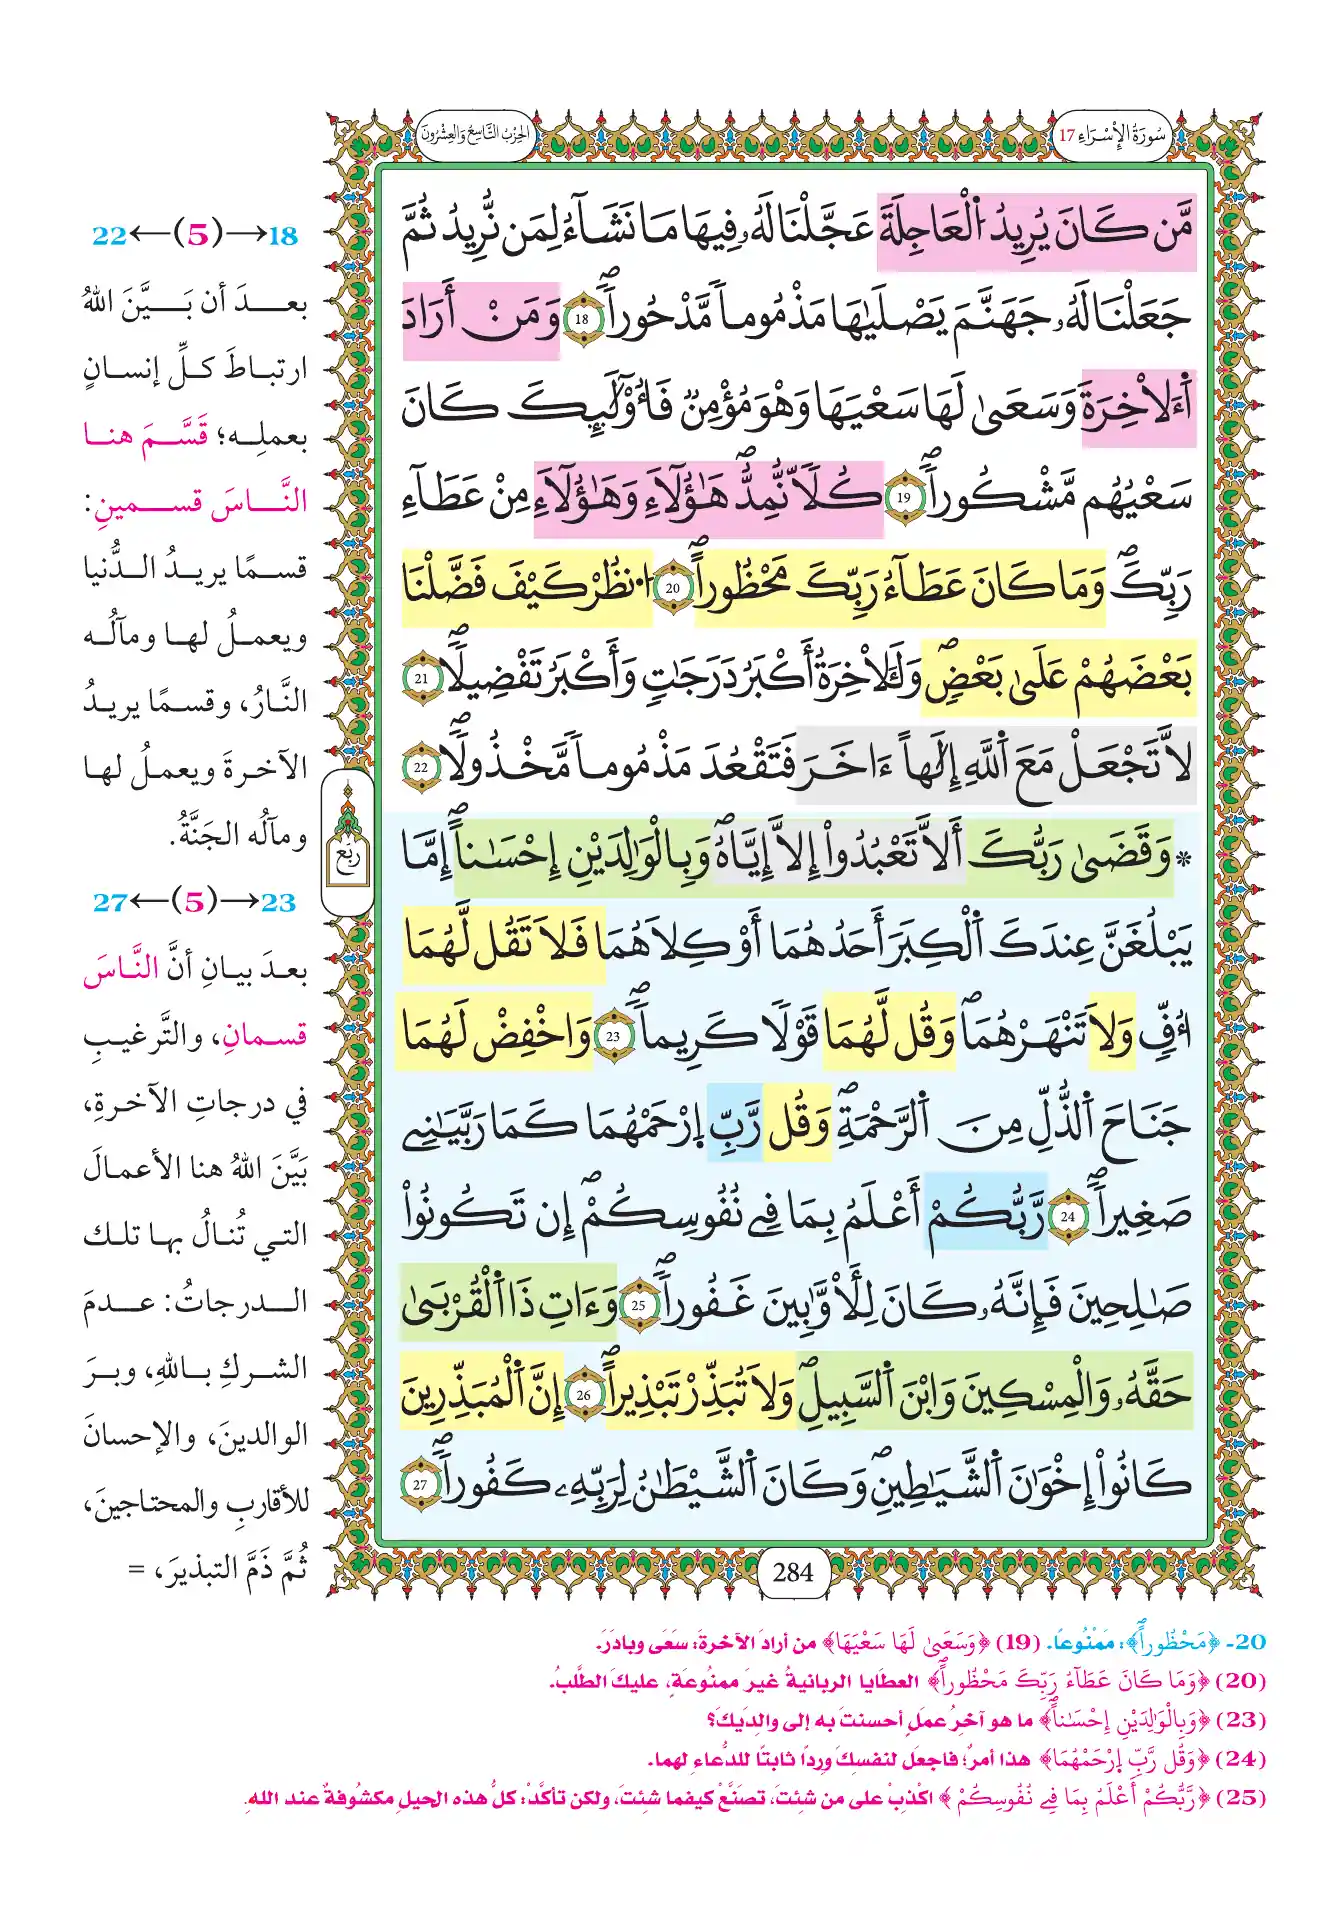 سُورَةُ الإِسْرَاءِ 17
الحِزْبُ التَّاسِعُ وَالعِشْرُونَ
مَّن كَانَ يُرِيدُ اُ۬لْعَاجِلَةَ عَجَّلْنَا لَهُۥ فِيهَا مَا نَشَآءُ لِمَن نُّرِيدُ ثُمَّ
جَعَلْنَا لَهُۥ جَهَنَّمَ يَصْلَيٰهَا مَذْمُوماٗ مَّدْحُوراٗۖ 18 وَمَنْ أَرَادَ
اَ۬لَاخِرَةَ وَسَعَىٰ لَهَا سَعْيَهَا وَهُوَ مُؤْمِنٞ فَأُوْلَٰٓئِكَ كَانَ
سَعْيُهُم مَّشْكُوراٗۖ 19 كُلّاٗ نُّمِدُّ هَٰٓؤُلَآءِ وَهَٰٓؤُلَآءِ مِنْ عَطَآءِ
رَبِّكَۖ وَمَا كَانَ عَطَآءُ رَبِّكَ مَحْظُوراًۖ 20 اُ۟نظُرْ كَيْفَ فَضَّلْنَا
بَعْضَهُمْ عَلَىٰ بَعْضٖۖ وَلَلَاخِرَةُ أَكْبَرُ دَرَجَٰتٖ وَأَكْبَرُ تَفْضِيلاٗۖ 21
لَّا تَجْعَلْ مَعَ اَ۬للَّهِ إِلَٰهاً ءَاخَرَ فَتَقْعُدَ مَذْمُوماٗ مَّخْذُولاٗۖ 22
* وَقَضَىٰ رَبُّكَ أَلَّا تَعْبُدُوٓاْ إِلَّآ إِيَّاهُۖ وَبِالْوَٰلِدَيْنِ إِحْسَٰناًۖ إِمَّا
يَبْلُغَنَّ عِندَكَ اَ۬لْكِبَرَ أَحَدُهُمَآ أَوْ كِلَاهُمَا فَلَا تَقُل لَّهُمَآ
أُفّٖ وَلَا تَنْهَرْهُمَاۖ وَقُل لَّهُمَا قَوْلاٗ كَرِيماٗۖ 23 وَاخْفِضْ لَهُمَا
جَنَاحَ اَ۬لذُّلِّ مِنَ اَ۬لرَّحْمَةِۖ وَقُل رَّبِّ اِ۪رْحَمْهُمَا كَمَا رَبَّيَٰنِے
صَغِيراٗۖ 24 رَّبُّكُمْ أَعْلَمُ بِمَا فِے نُفُوسِكُمْۖ إِن تَكُونُواْ
صَٰلِحِينَ فَإِنَّهُۥ كَانَ لِلْأَوَّٰبِينَ غَفُوراٗۖ 25 وَءَاتِ ذَا اَ۬لْقُرْبَىٰ
حَقَّهُۥ وَالْمِسْكِينَ وَابْنَ اَ۬لسَّبِيلِۖ وَلَا تُبَذِّرْ تَبْذِيراًۖ 26 إِنَّ اَ۬لْمُبَذِّرِينَ
كَانُوٓاْ إِخْوَٰنَ اَ۬لشَّيَٰطِينِۖ وَكَانَ اَ۬لشَّيْطَٰنُ لِرَبِّهِۦ كَفُوراٗۖ 27
284
ربع
18→(5)←22
بعدَ أن بَيَّنَ اللهُ
ارتباطَ كلِّ إنسانٍ
بعملِه؛ قَسَّمَ هنا
النَّاسَ قسمينِ:
قسمًا يريدُ الدُّنيا
ويعملُ لها ومآلُه
النَّارُ، وقسمًا يريدُ
الآخرةَ ويعملُ لها
ومآلُه الجَنَّةُ.
23→(5)←27
بعدَ بيانِ أنَّ النَّاسَ
قسمانِ، والتَّرغيبِ
في درجاتِ الآخرةِ،
بَيَّنَ اللهُ هنا الأعمالَ
التي تُنالُ بها تلك
الدرجاتُ: عدمَ
الشركِ باللهِ، وبرَ
الوالدينَ، والإحسانَ
للأقاربِ والمحتاجينَ،
ثُمَّ ذَمَّ التبذيرَ، =
20- ﴿مَحْظُوراًۖ﴾: مَمْنُوعًا. (19) ﴿وَسَعَىٰ لَهَا سَعْيَهَا﴾ من أرادَ الآخرةَ: سَعَى وبادَرَ.
(20) ﴿وَمَا كَانَ عَطَآءُ رَبِّكَ مَحْظُوراًۖ﴾ العطايا الربانيةُ غيرَ ممنُوعةٍ، عليكَ الطَّلبُ.
(23) ﴿وَبِالْوَٰلِدَيْنِ إِحْسَٰناًۖ﴾ ما هو آخرُ عملٍ أحسنتَ به إلى والدِيكَ؟
(24) ﴿وَقُل رَّبِّ اِ۪رْحَمْهُمَا﴾ هذا أمرٌ؛ فاجعل لنفسِكَ وِردًا ثابتًا للدُّعاءِ لهما.
(25) ﴿رَّبُّكُمْ أَعْلَمُ بِمَا فِے نُفُوسِكُمْ﴾ اكْذِبْ على من شئِتَ، تصنَّعْ كيفما شئِتَ، ولكن تأكَّدْ: كلُّ هذه الحيلِ مكشُوفةٌ عند اللهِ.